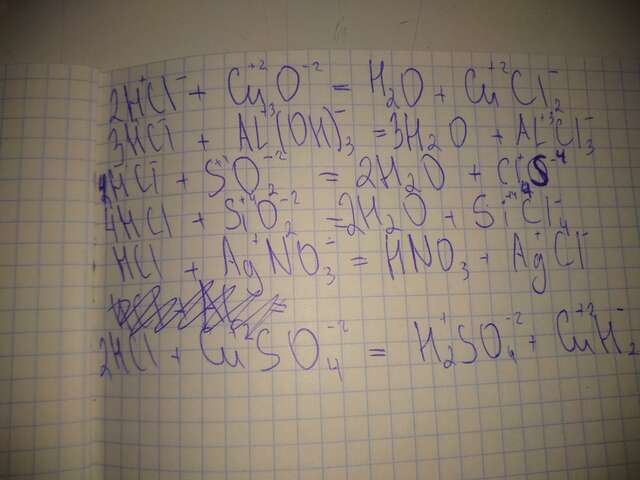 2H⁺Cl⁻ + Cu⁺²O⁻² = H₂O + Cu⁺²Cl₂⁻
3HCl + Al⁺³(OH)₃⁻ = 3H₂O + Al⁺³Cl₃⁻
4HCl + S⁺⁴O₂⁻² = 2H₂O + Cl₄⁺S⁻⁴
4HCl + Si⁺⁴O₂⁻² = 2H₂O + Si⁺⁴Cl₄⁻
HCl + Ag⁺NO₃⁻ = HNO₃ + Ag⁺Cl⁻
2HCl + Cu⁺²SO₄⁻² = H₂⁺SO₄⁻² + Cu⁺²H₂⁻